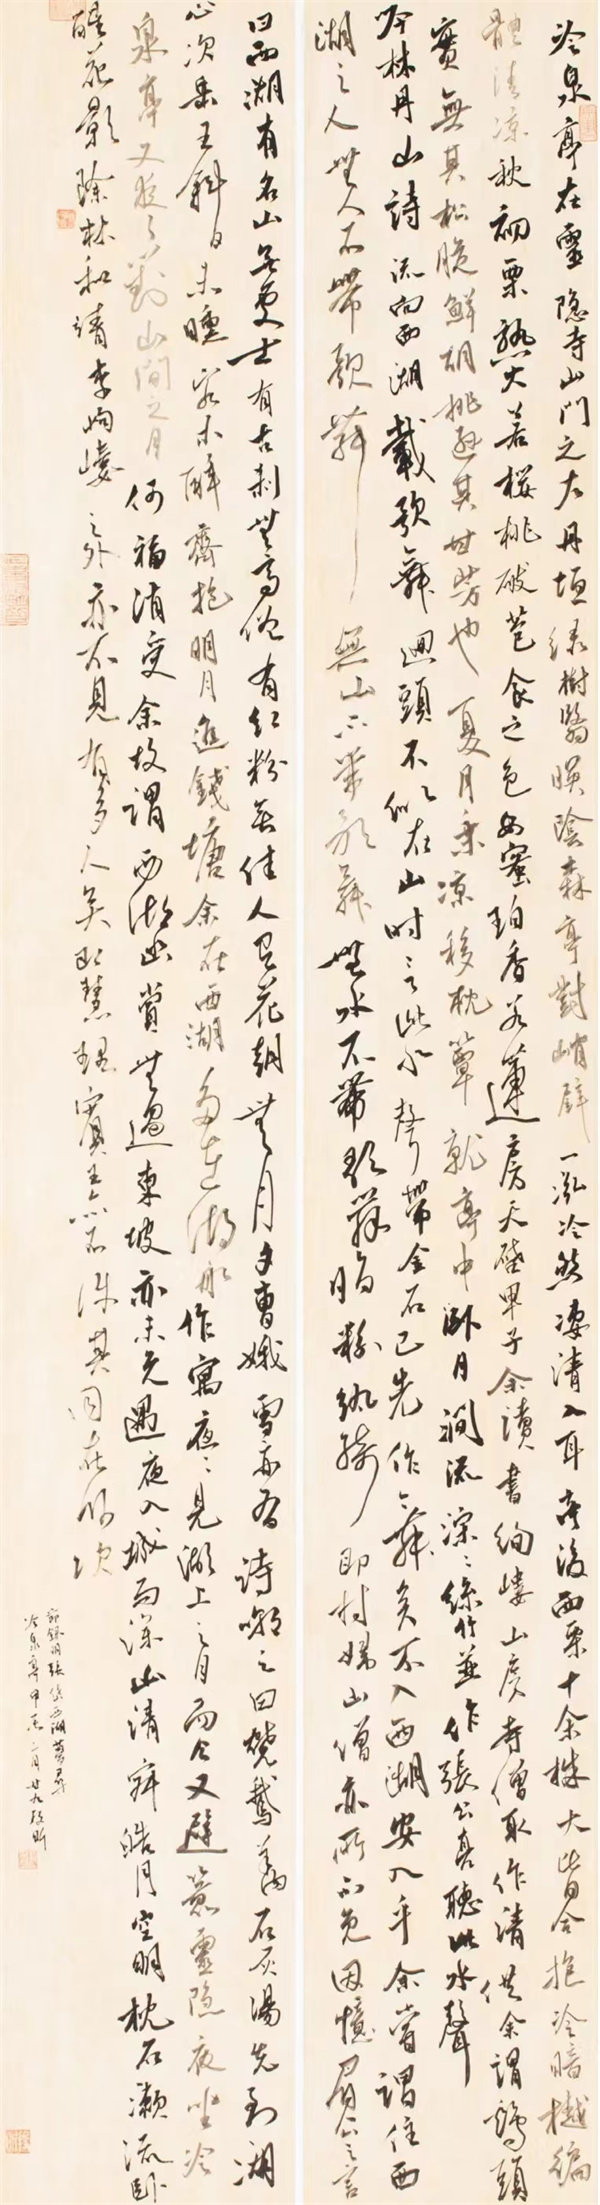 冷泉亭在靈隐寺山門之左丹垣绿樹翳暎陰森亭對峭壁一泓泠然凄清入耳亭後西栗十余株大皆合抱冷暗樾徧
體清凉秋初栗熟大若櫻桃破苞食之色如蜜珀香若蓮房天啓甲子余讀書岣嶁山房寺僧取作清供余謂鷄頭
實無其松脆鮮胡桃遜其甘芳也夏月乘凉移枕簟就亭中卧月澗流淙淙絲竹並作張公亮聽此水聲
吟林丹山詩流向西湖載歌舞迴頭不似在山時言此水聲帶金石已先作歌舞矣不入西湖安入乎余嘗謂住西
湖之人無人不帶歌舞無山不帶歌舞無水不帶歌舞脂粉紈綺即村婦山僧亦所不免因憶眉公之言
曰西湖有名山無處士有古刹無高僧有红粉無佳人有花朝無月夕曹娥雪亦有詩嘲之曰燒鵝羊肉石灰湯先到湖
心次岳王斜日未曛客未醉齊抛明月進錢塘余在西湖多在湖船作寓夜夜見湖上之月而今又避囂靈隐夜坐冷
泉亭又夜夜對山間之月何福消受余故謂西湖幽賞無過東坡亦未免遇夜入城而深山清寂皓月空明枕石漱流卧
醒花影除林和靖李岣嶁之外亦不見有多人矣即慧理賓王亦不許其同在卧次
節録明張岱西湖夢尋
冷泉亭甲辰二月廿九